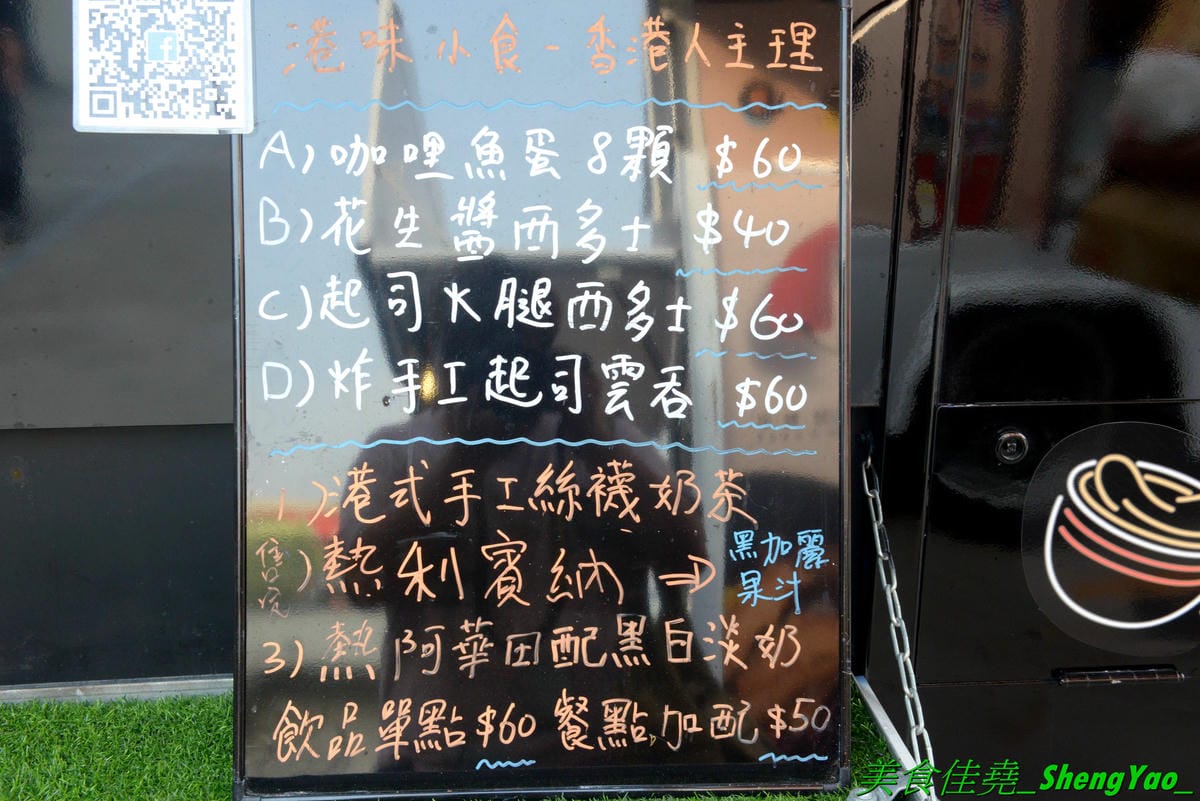 港味小食-香港人主理
A)咖哩魚蛋8顆 $60
B)花生醬西多士 $40
C)起司火腿西多士 $60
D)炸手工起司雲吞 $60
1)港式手工絲襪奶茶
售完)熱利賓納 ⇒ 黑加麗果汁
3)熱阿華田配黑白淡奶
飲品單點$60 餐點加配$50
美食佳堯_ShengYao_